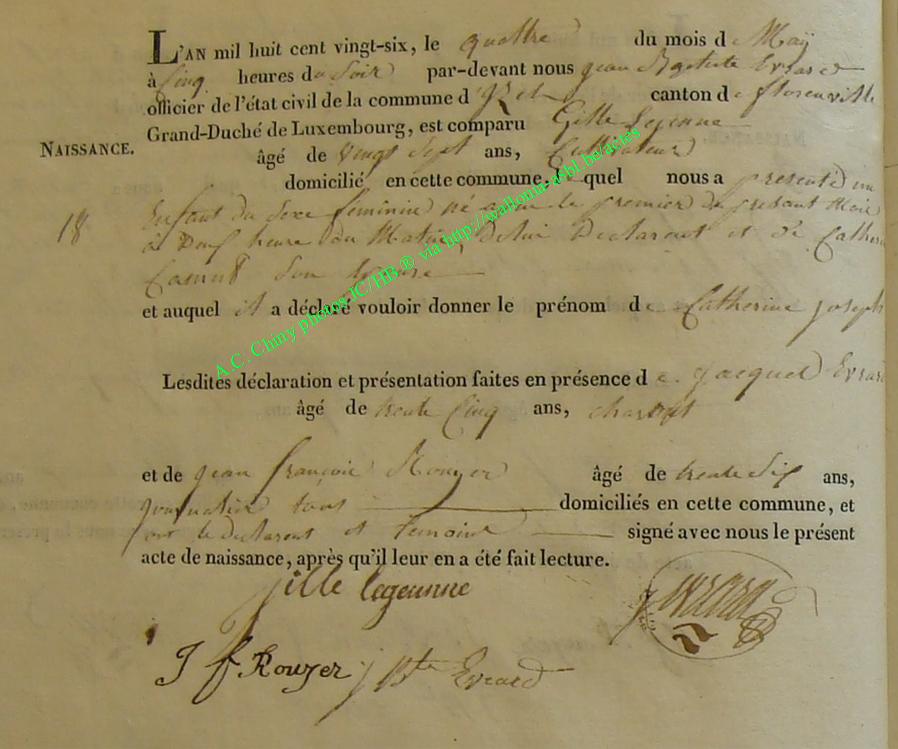 L'AN mil huit cent vingt-six, le quattre du mois de May
à Cinq heures du Soir par-devant nous jean Baptiste Evrard
officier de l'état civil de la commune d'Izel canton de florenville
Grand-Duché de Luxembourg, est comparu Gille Lejeune
NAISSANCE.
âgé de vingt Sept ans, Cultivateur
domicilié en cette commune, lequel nous a presenté un
18
Enfant du Sexe feminin né le premier du present Mois
a neuf heure du Matin, De lui Declarant et de Catherine
Son Epouse
et auquel il a déclaré vouloir donner le prénom de Catherine joseph
Lesdites déclaration et présentation faites en présence de jacque Evrard
âgé de trente Cinq ans,
et de jean françois Rouyer âgé de trente Six ans,
tous domiciliés en cette commune, et
ont le declarant et temoins signé avec nous le présent
acte de naissance, après qu'il leur en a été fait lecture.
gille legeunne
Evrard
J f Rouyer j Bte Evrard
A.C. Chiny photos JC/HB ® via http://wallonia-asbl.be/actes